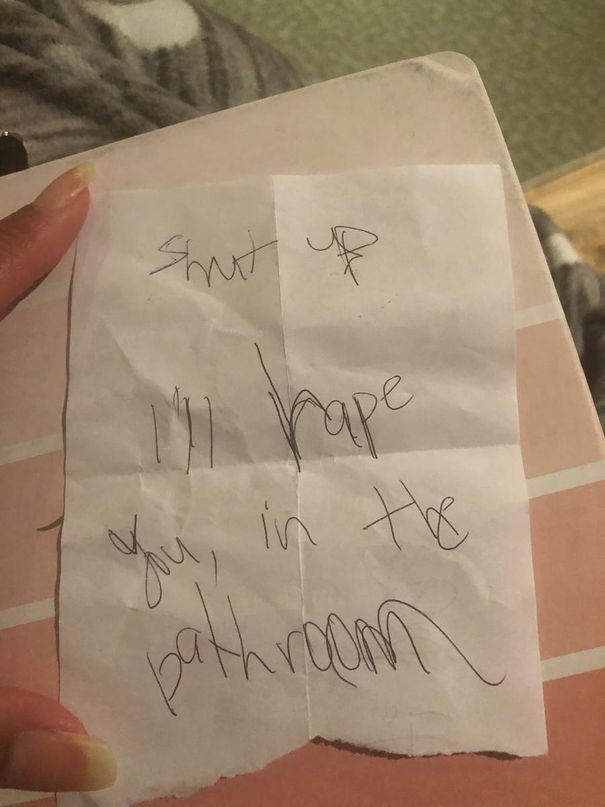 Shut up
I'll rape
you, in the
bathroom